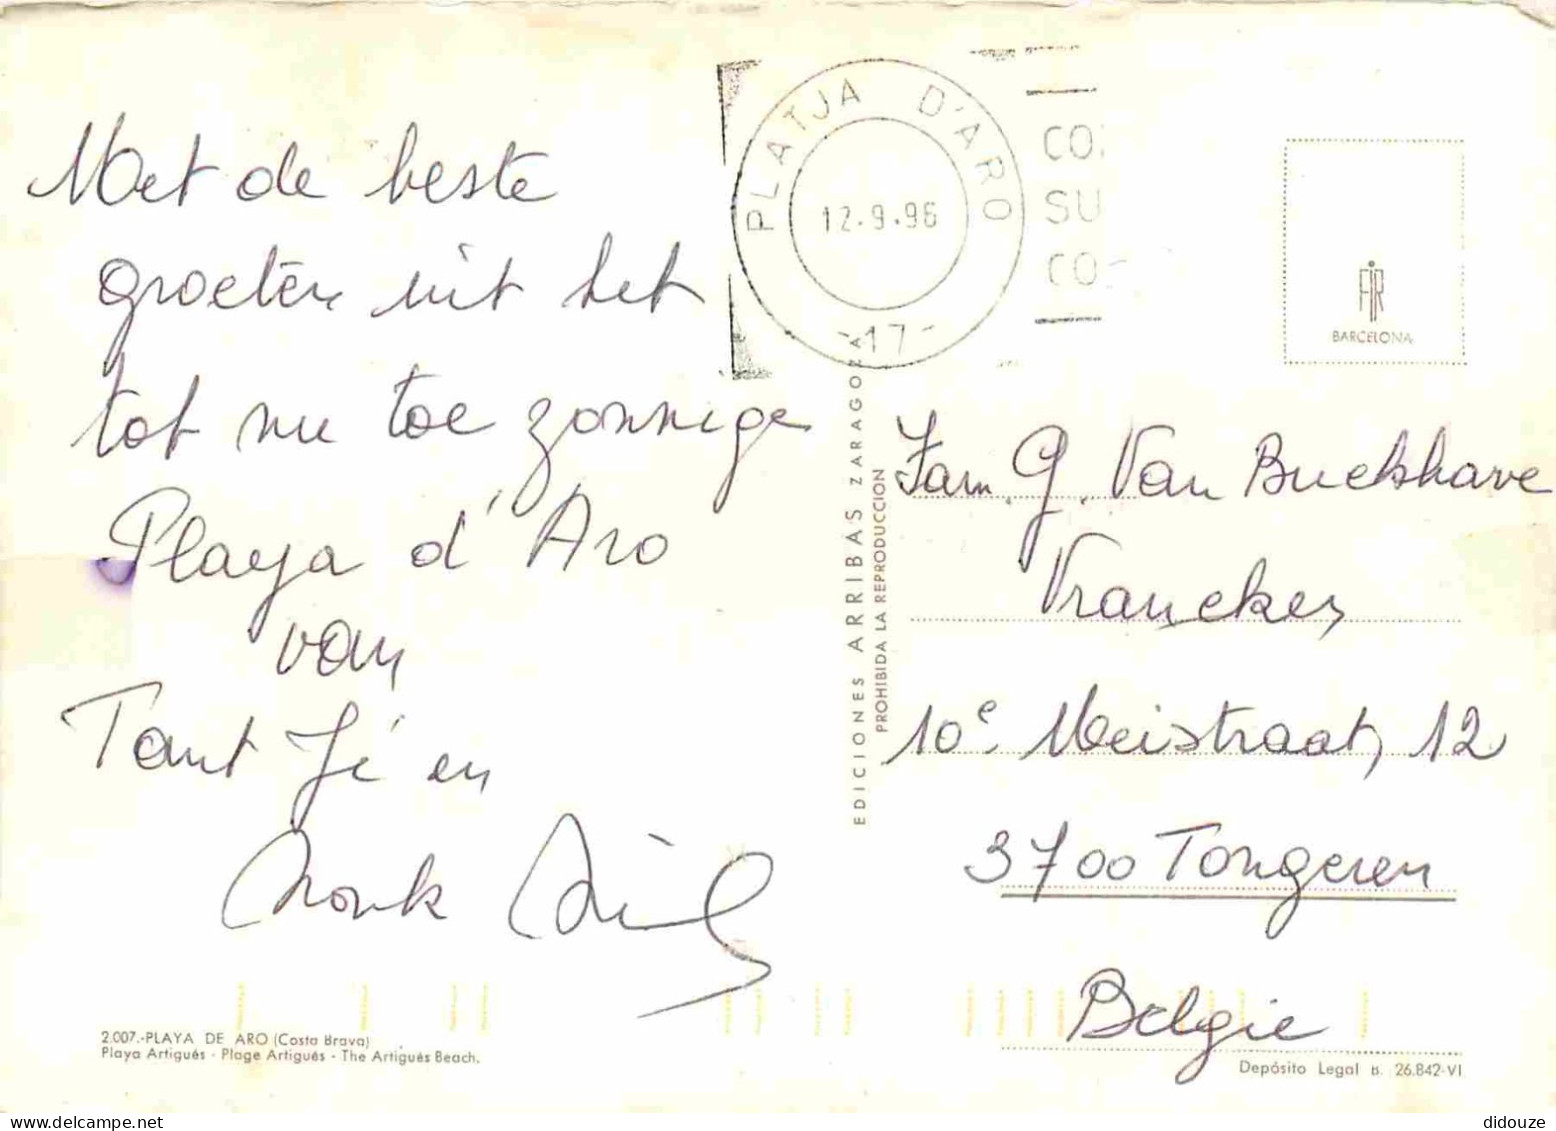 Met de beste
groeten uit het
tot nu toe zonnige
Playa d'Aro
van
Tant Jé en
Nonk
PLATJA D'ARO
12-9-96
-17-
CO
SU
CO
BARCELONA
EDICIONES ARRIBAS ZARAGOZA
PROHIBIDA LA REPRODUCCION
Fam. G. Van Buckhave
Vrancken
10e Meistraat, 12
3700 Tongeren
Belgie
2.007.-PLAYA DE ARO (Costa Brava)
Playa Artigués - Plage Artigués - The Artigués Beach.
Depósito Legal B. 26.842-VI
didouze